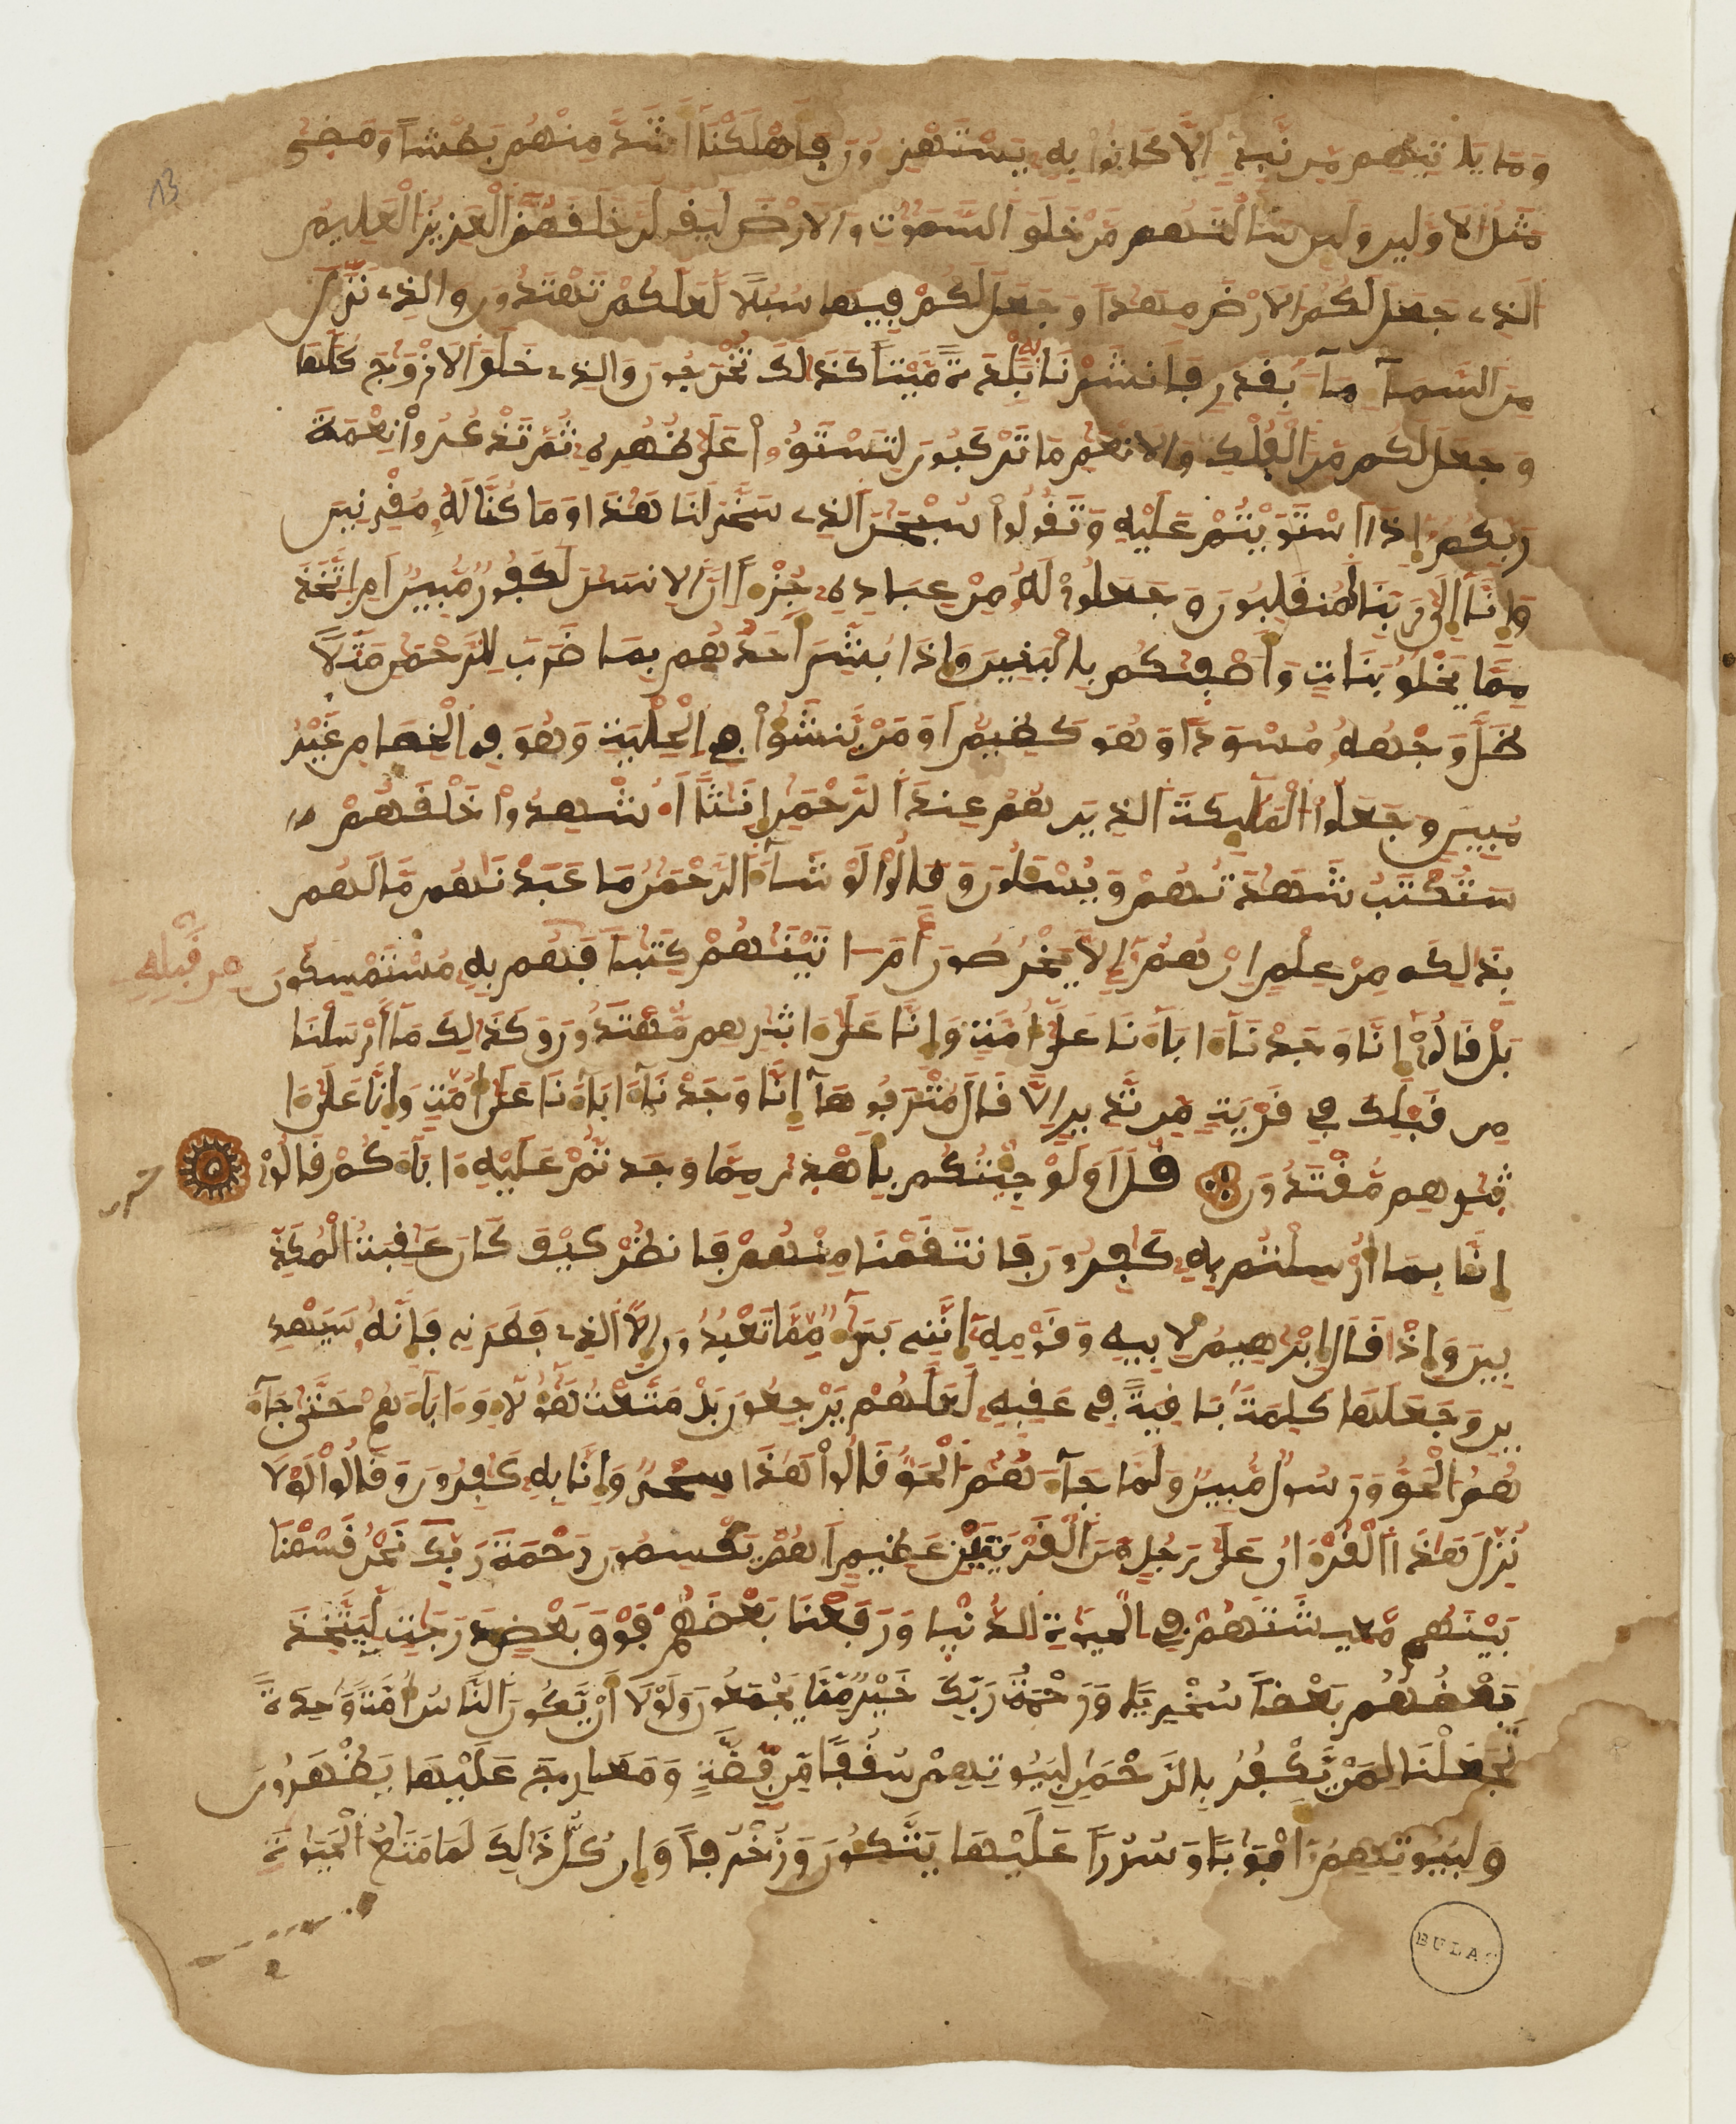 وَمَا يَاتِيهِم مِّن نَّبِيءٍ اِلَّا كَانُوا۟ بِهِۦ يَسْتَهْزِءُونَ فَأَهْلَكْنَا أَشَدَّ مِنْهُم بَطْشاً وَمَضَىٰ
مَثَلُ الَاوَّلِينَ وَلَئِن سَأَلْتَهُم مَّنْ خَلَقَ السَّمَٰوَٰتِ وَالَارْضَ لَيَقُولُنَّ خَلَقَهُنَّ الْعَزِيزُ الْعَلِيمُ
الَّذِے جَعَلَ لَكُمُ الَارْضَ مِهَٰداً وَجَعَلَ لَكُمْ فِيهَا سُبُلاً لَّعَلَّكُمْ تَهْتَدُونَ وَالَّذِے نَزَّلَ
مِنَ السَّمَآءِ مَآءَ بِقَدَرٍ فَأَنشَرْنَا بِهِۦ بَلْدَةً مَّيْتاً كَذَٰلِكَ تُخْرَجُونَ وَالَّذِے خَلَقَ الَازْوَٰجَ كُلَّهَا
وَجَعَلَ لَكُم مِّنَ الْفُلْكِ وَالَانْعَٰمِ مَا تَرْكَبُونَ لِتَسْتَوُۥا۟ عَلَىٰ ظُهُورِهِۦ ثُمَّ تَذْكُرُوا۟ نِعْمَةَ
رَبِّكُمُۥ إِذَا اَسْتَوَيْتُمْ عَلَيْهِ وَتَقُولُوا۟ سُبْحَٰنَ الَّذِے سَخَّرَ لَنَا هَٰذَا وَمَا كُنَّا لَهُۥ مُقْرِنِينَ
وَإِنَّا إِلَىٰ رَبِّنَا لَمُنقَلِبُونَ وَجَعَلُوا۟ لَهُۥ مِنْ عِبَادِهِۦ جُزْءاً اِنَّ الِانسَٰنَ لَكَفُورٌ مُّبِينٌ اَمِ اِتَّخَذَ
مِمَّا يَخْلُقُ بَنَاتٍ وَأَصْفَىٰكُم بِالْبَنِينَ وَإِذَا بُشِّرَ أَحَدُهُم بِمَا ضَرَبَ لِلرَّحْمَٰنِ مَثَلاً
ظَلَّ وَجْهُهُۥ مُسْوَدّاً وَهُوَ كَظِيمٌ اَوَمَنْ يَّنشَؤُا۟ فِے الْحِلْيَةِ وَهُوَ فِے الْخِصَامِ غَيْرُ
مُبِينٍ وَجَعَلُوا۟ الْمَلَٰٓئِكَةَ الَّذِينَ هُمْ عِندَ الرَّحْمَٰنِ إِنَٰثاً اَ۟شْهِدُوا۟ خَلْقَهُمْ
سَتُكْتَبُ شَهَٰدَتُهُمْ وَيُسْـَٔلُونَ وَقَالُوا۟ لَوْ شَآءَ الرَّحْمَٰنُ مَا عَبَدْنَٰهُم مَّا لَهُم
بِذَٰلِكَ مِنْ عِلْمٍ اِنْ هُمُۥ إِلَّا يَخْرُصُونَ أَمَ اٰتَيْنَٰهُمْ كِتَٰباً مِّن قَبْلِهِۦ فَهُم بِهِۦ مُسْتَمْسِكُونَ
بَلْ قَالُوا۟ إِنَّا وَجَدْنَآ ءَابَآءَنَا عَلَىٰ أُمَّةٍ وَإِنَّا عَلَىٰ ءَاثَٰرِهِم مُّهْتَدُونَ وَكَذَٰلِكَ مَا أَرْسَلْنَا
مِن قَبْلِكَ فِے قَرْيَةٍ مِّن نَّذِيرٍ اِلَّا قَالَ مُتْرَفُوهَا إِنَّا وَجَدْنَآ ءَابَآءَنَا عَلَىٰ أُمَّةٍ وَإِنَّا عَلَىٰ ءَا
ثَٰرِهِم مُّقْتَدُونَ قُلَ اَوَلَوْ جِئْتُكُم بِأَهْدَىٰ مِمَّا وَجَدتُّمْ عَلَيْهِ ءَابَآءَكُمْ قَالُوا۟
إِنَّا بِمَا أُرْسِلْتُم بِهِۦ كَٰفِرُونَ فَانتَقَمْنَا مِنْهُمْ فَانظُرْ كَيْفَ كَانَ عَٰقِبَةُ الْمُكَذِّ
بِينَ وَإِذْ قَالَ إِبْرَٰهِيمُ لِأَبِيهِ وَقَوْمِهِۦ إِنَّنِے بَرَآءٌ مِّمَّا تَعْبُدُونَ إِلَّا الَّذِے فَطَرَنِے فَإِنَّهُۥ سَيَهْدِ
ينِ وَجَعَلَهَا كَلِمَةً بَاقِيَةً فِے عَقِبِهِۦ لَعَلَّهُمْ يَرْجِعُونَ بَلْ مَتَّعْتُ هَٰٓؤُلَآءِ وَءَابَآءَهُمْ حَتَّىٰ جَآءَ
هُمُ الْحَقُّ وَرَسُولٌ مُّبِينٌ وَلَمَّا جَآءَهُمُ الْحَقُّ قَالُوا۟ هَٰذَا سِحْرٌ وَإِنَّا بِهِۦ كَٰفِرُونَ وَقَالُوا۟ لَوْلَا
نُزِّلَ هَٰذَا الْقُرْءَانُ عَلَىٰ رَجُلٍ مِّنَ الْقَرْيَتَيْنِ عَظِيمٍ اَهُمْ يَقْسِمُونَ رَحْمَةَ رَبِّكَ نَحْنُ قَسَمْنَا
بَيْنَهُم مَّعِيشَتَهُمْ فِے الْحَيَوٰةِ الدُّنْيَا وَرَفَعْنَا بَعْضَهُمْ فَوْقَ بَعْضٍ دَرَجَٰتٍ لِّيَتَّخِذَ
بَعْضُهُم بَعْضاً سُخْرِيّاً وَرَحْمَتُ رَبِّكَ خَيْرٌ مِّمَّا يَجْمَعُونَ وَلَوْلَا أَنْ يَّكُونَ النَّاسُ أُمَّةً وَٰحِدَةً
لَّجَعَلْنَا لِمَنْ يَّكْفُرُ بِالرَّحْمَٰنِ لِبُيُوتِهِمْ سُقُفاً مِّن فِضَّةٍ وَمَعَارِجَ عَلَيْهَا يَظْهَرُونَ
وَلِبُيُوتِهِمُۥ أَبْوَٰباً وَسُرُراً عَلَيْهَا يَتَّكِـُٔونَ وَزُخْرُفاً وَإِن كُلُّ ذَٰلِكَ لَمَا مَتَٰعُ الْحَيَوٰةِ
BULAC